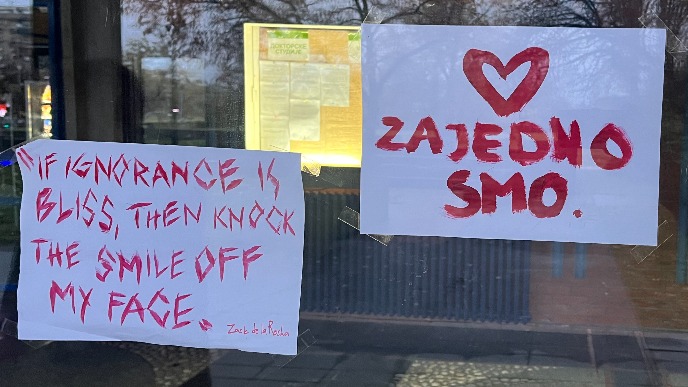 "IF IGNORANCE IS
BLISS, THEN KNOCK
THE SMILE OFF
MY FACE.
Zack de la Rocha
ДОКТОРСКЕ
СТУДИЈЕ
ZAJEDNO
SMO.